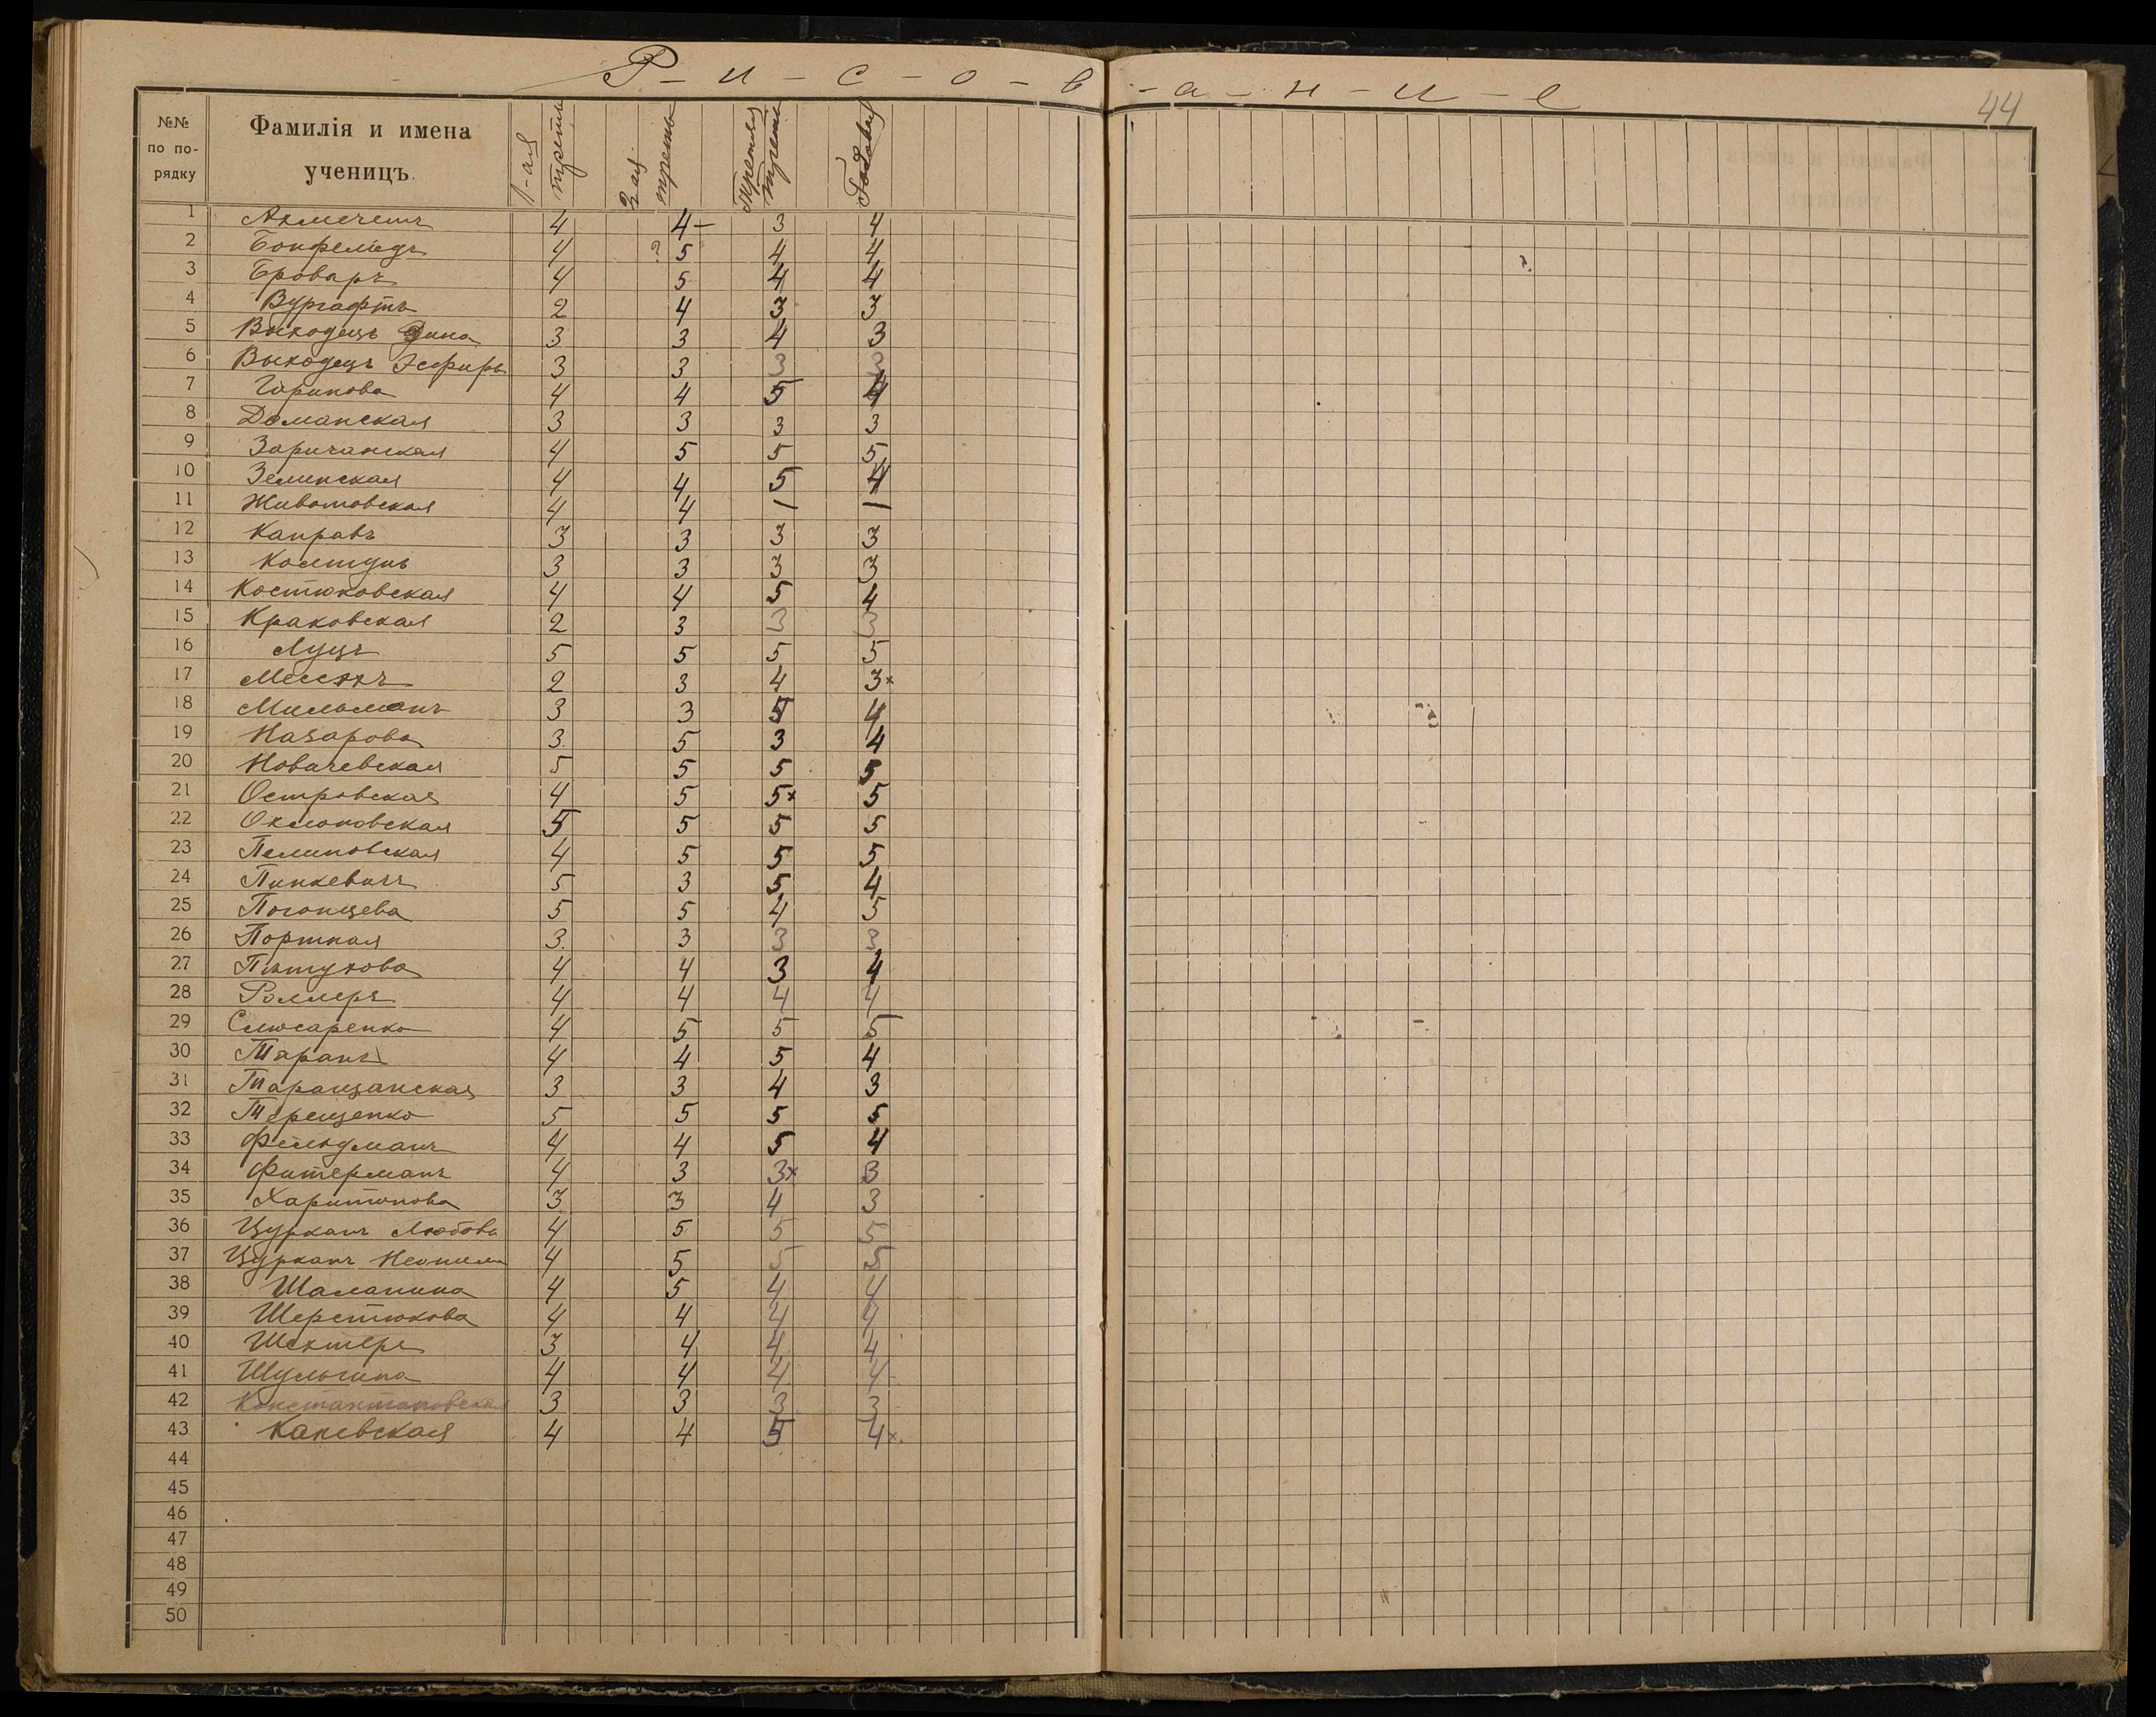 Р - и - с - о - в - а - н - и - е
44
№№ по по- рядку
Фамилія и имена ученицъ.
1-ая треть
2 ая треть
Третья треть
Годовая
1 Акмечетъ 4 4- 3 4
2 Бонфельдъ 4 ? 5 4 4
3 Броваръ 4 5 4 4
4 Вургафтъ 2 4 3 3
5 Выходецъ Дина 3 3 4 3
6 Выходецъ Эсфирь 3 3 3 3
7 4 4 5 4
8 Доманская 3 3 3 3
9 Заричанская 4 5 5 5
10 Зелинская 4 4 5 4
11 Животовская 4 4 / /
12 Каправъ 3 3 3 3
13 Колтунъ 3 3 3 3
14 Костюковская 4 4 5 4
15 Краковская 2 3 3 3
16 Луцъ 5 5 5 5
17 2 3 4 3x
18 Мильманъ 3 3 5 4
19 Назарова 3 5 3 4
20 Новачевская 5 5 5 5
21 Островская 4 5 5x 5
22 5 5 5 5
23 Пелиновская 4 5 5 5
24 Пинкевичъ 5 3 5 4
25 Погонцева 5 5 4 5
26 Портная 3 3 3 3
27 4 4 3 4
28 Роллеръ 4 4 4 4
29 Слюсаренко 4 5 5 5
30 Таранъ 4 4 5 4
31 Таращанская 3 3 4 3
32 Терещенко 5 5 5 5
33 Фельдманъ 4 4 5 4
34 Фитерманъ 4 3 3x 3
35 Харитонова 3 3 4 3
36 Цурканъ Любовь 4 5 5 5
37 Цурканъ Неонила 4 5 5 5
38 Шаланина 4 5 4 4
39 Шерстюкова 4 4 4 4
40 Шехтеръ 3 4 4 4
41 Шульгина 4 4 4 4
42 Константиновская 3 3 3 3
43 Каневская 4 4 5 4x
44
45
46
47
48
49
50